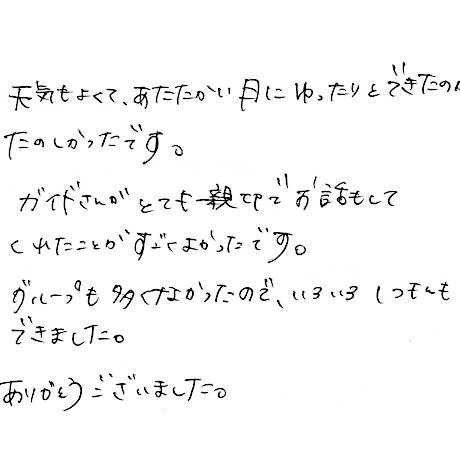 天気もよくて、あたたかい日にゆったりとできたの
たのしかったです。
ガイドさんがとても親切でお話もして
くれたことがすごくよかったです。
グループも多くなかったので、いろいろしつもんも
できました。
ありがとうございました。